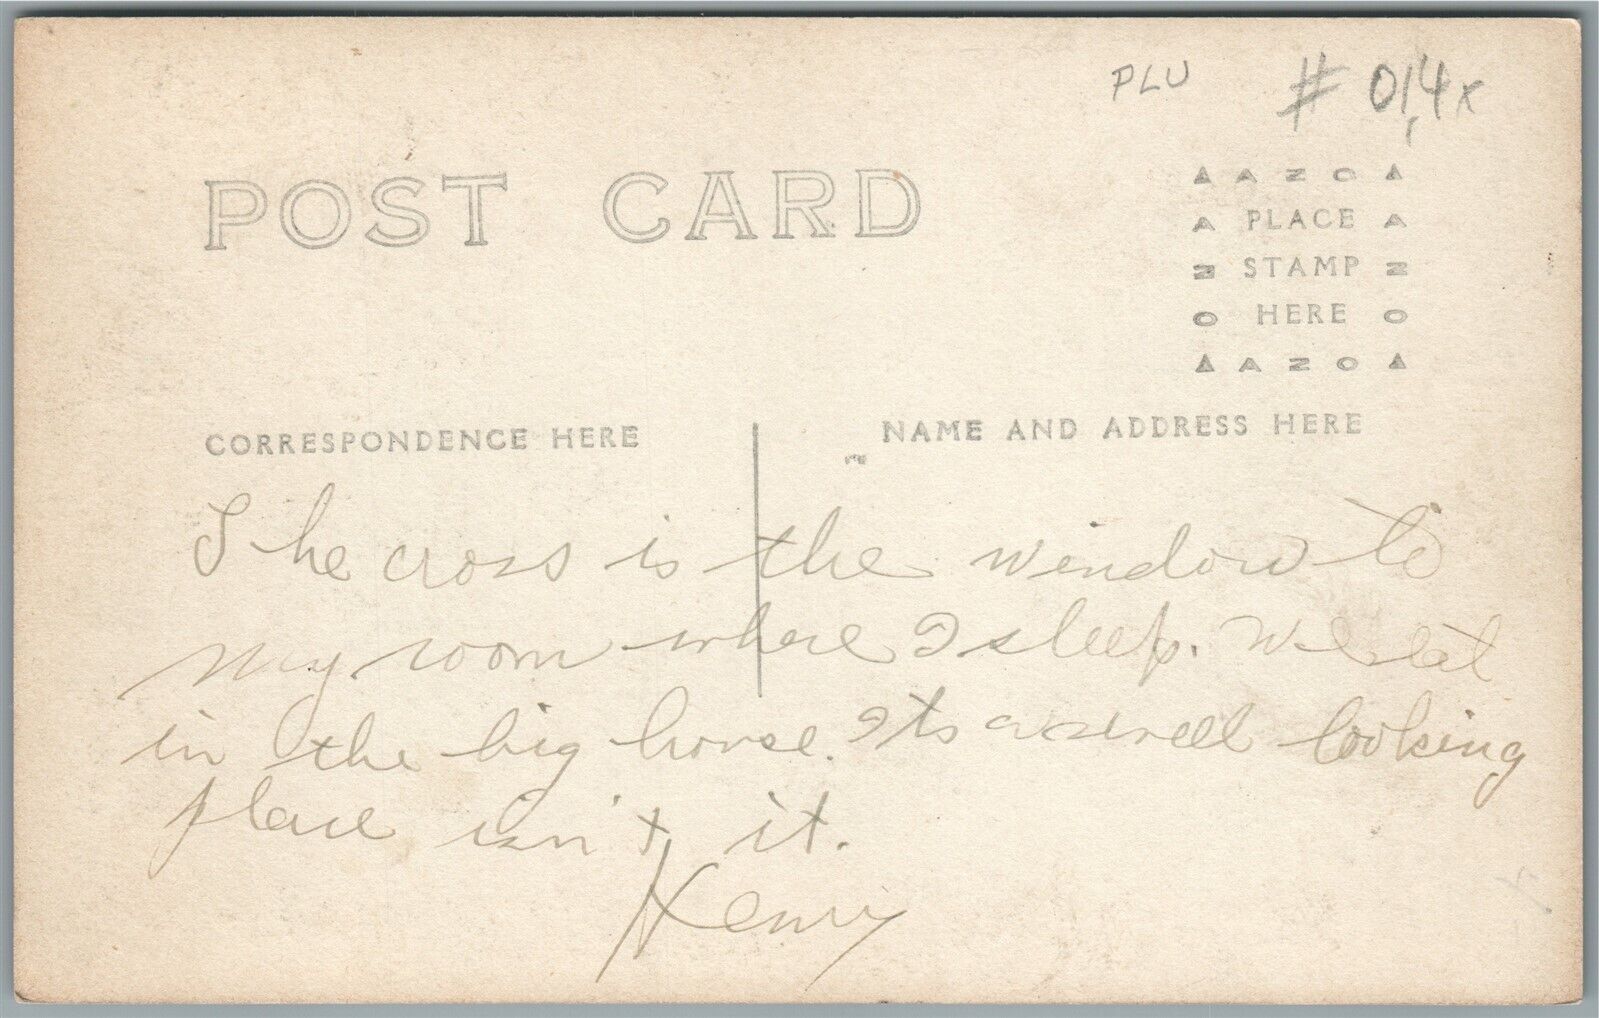 PLU # 014x
POST CARD
▲ A Z O ▲
A PLACE A
Z STAMP Z
O HERE O
▲ A Z O ▲
CORRESPONDENCE HERE
NAME AND ADDRESS HERE
The cross is the window to
my room where I sleep. We eat
in the big house. Its a swell looking
place isn't it.
Henry